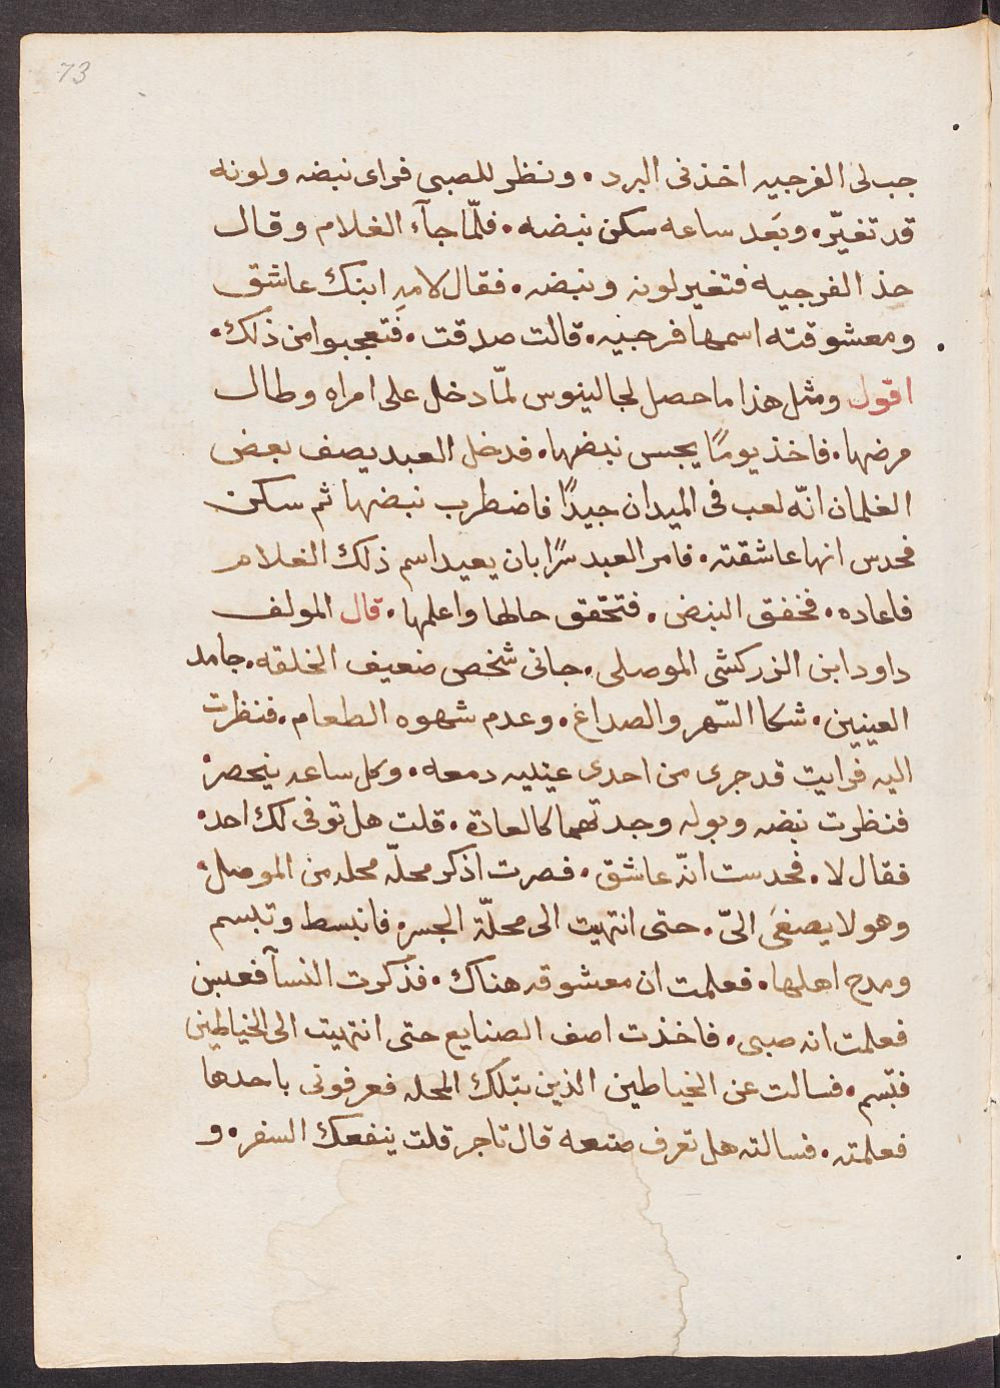 73
جب لى الفرجيه اخذنى البرد. ونظر للصبى فراى نبضه ولونه
قد تغيّر. وبَعد ساعه سكن نبضه. فلمّا جآء الغلام وقال
خذ الفرجيه فتغير لونه ونبضه. فقال لامهِ ابنك عاشق
ومعشوقته اسمها فرجيه. قالت صدقت. فتعجبوا من ذلك.
اقول ومثل هذا ما حصل لجالينوس لمّا دخل على امراه وطال
مرضها. فاخذ يومًا يجس نبضها. فدخل العبد يصف بعض
الغلمان انّه لعب فى الميدان جيدًا فاضطرب نبضها ثم سكن
فحدس انها عاشقته. فامر العبد سرًا بان يعيد اسم ذلك الغلام
فاعاده. فخفق النبض. فتحقق حالها واعلمها. قال المولف
داود ابن الزركشى الموصلى. جانى شخص ضعيف الخلقه. جامد
العينين. شكا السّهر والصداغ. وعدم شهوه الطعام. فنظرت
اليه فرايت قد جرى من احدى عينيه دمعه. وكل ساعه ينحصر.
فنظرت نبضه وبوله وجدتهما كالعادة. قلت هل توفى لك احد.
فقال لا. فحدست انّه عاشق. فصرت اذكر محلّه محله من الموصل.
وهو لا يصغى الىّ. حتى انتهيت الى محلّة الجسر. فانبسط وتبسم
ومدح اهلها. فعلمت ان معشوقه هناك. فذكرت النسآ فعبس
فعلمت انه صبى. فاخذت اصف الصنايع حتى انتهيت الى الخياطين
فتبسم. فسالت عن الخياطين الذين بتلك المحله فعرفونى باحدها
فعلمته. فسالته هل تعرف صنعه قال تاجر قلت ينفعك السفر. و